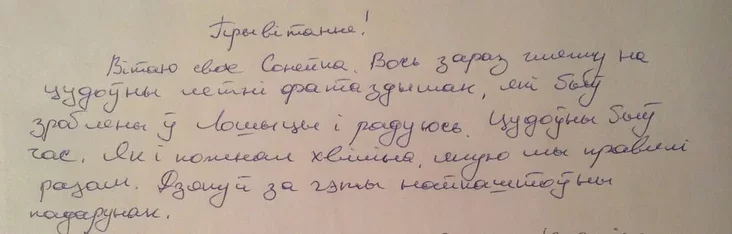 Прывітанне!
Вітаю свае Сонейка. Вось зараз гляжу на
цудоўны летні фотаздымак, які быў
зроблены ў Лошыцы і радуюсь. Цудоўны быў
час. Як і кожная хвіліна, якую мы правялі
разам. Дзякуй за гэты найкаштоўны
падарунак.